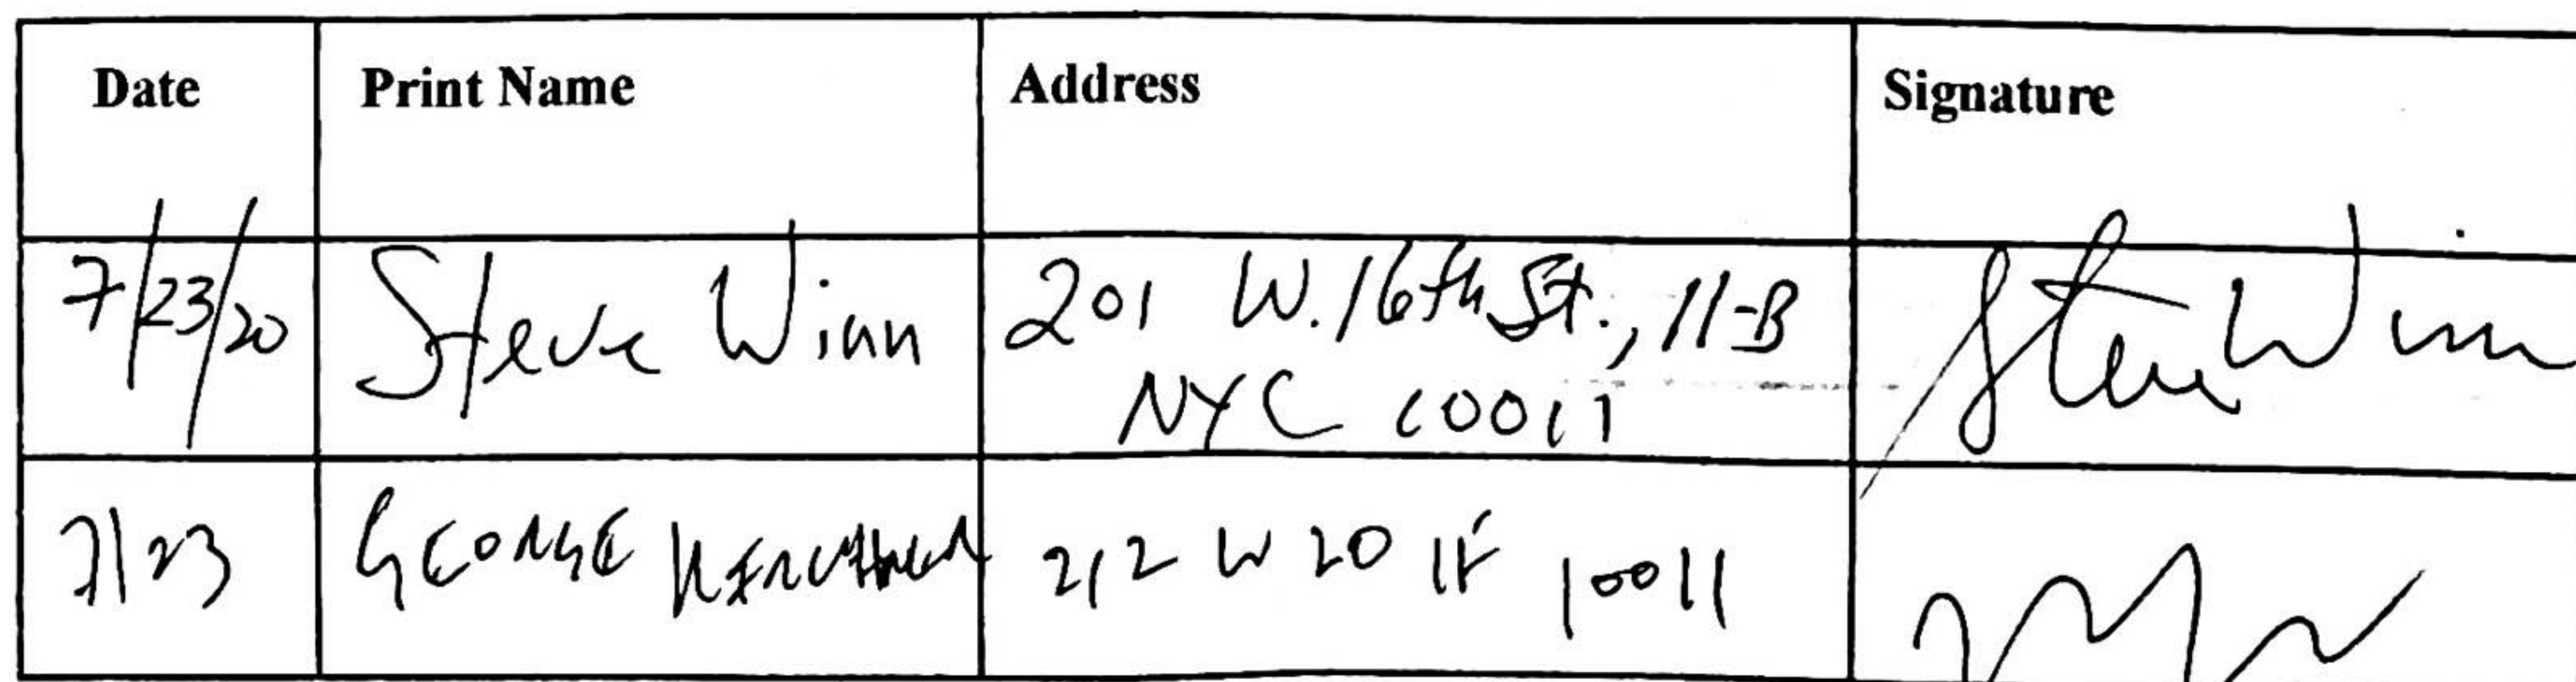 Date Print Name Address Signature
7/23/20 Steve Winn 201 W. 16th St., 11-B Steve Winn
NYC 10011
7/23 GEORGE 212 W 20 1F 10011